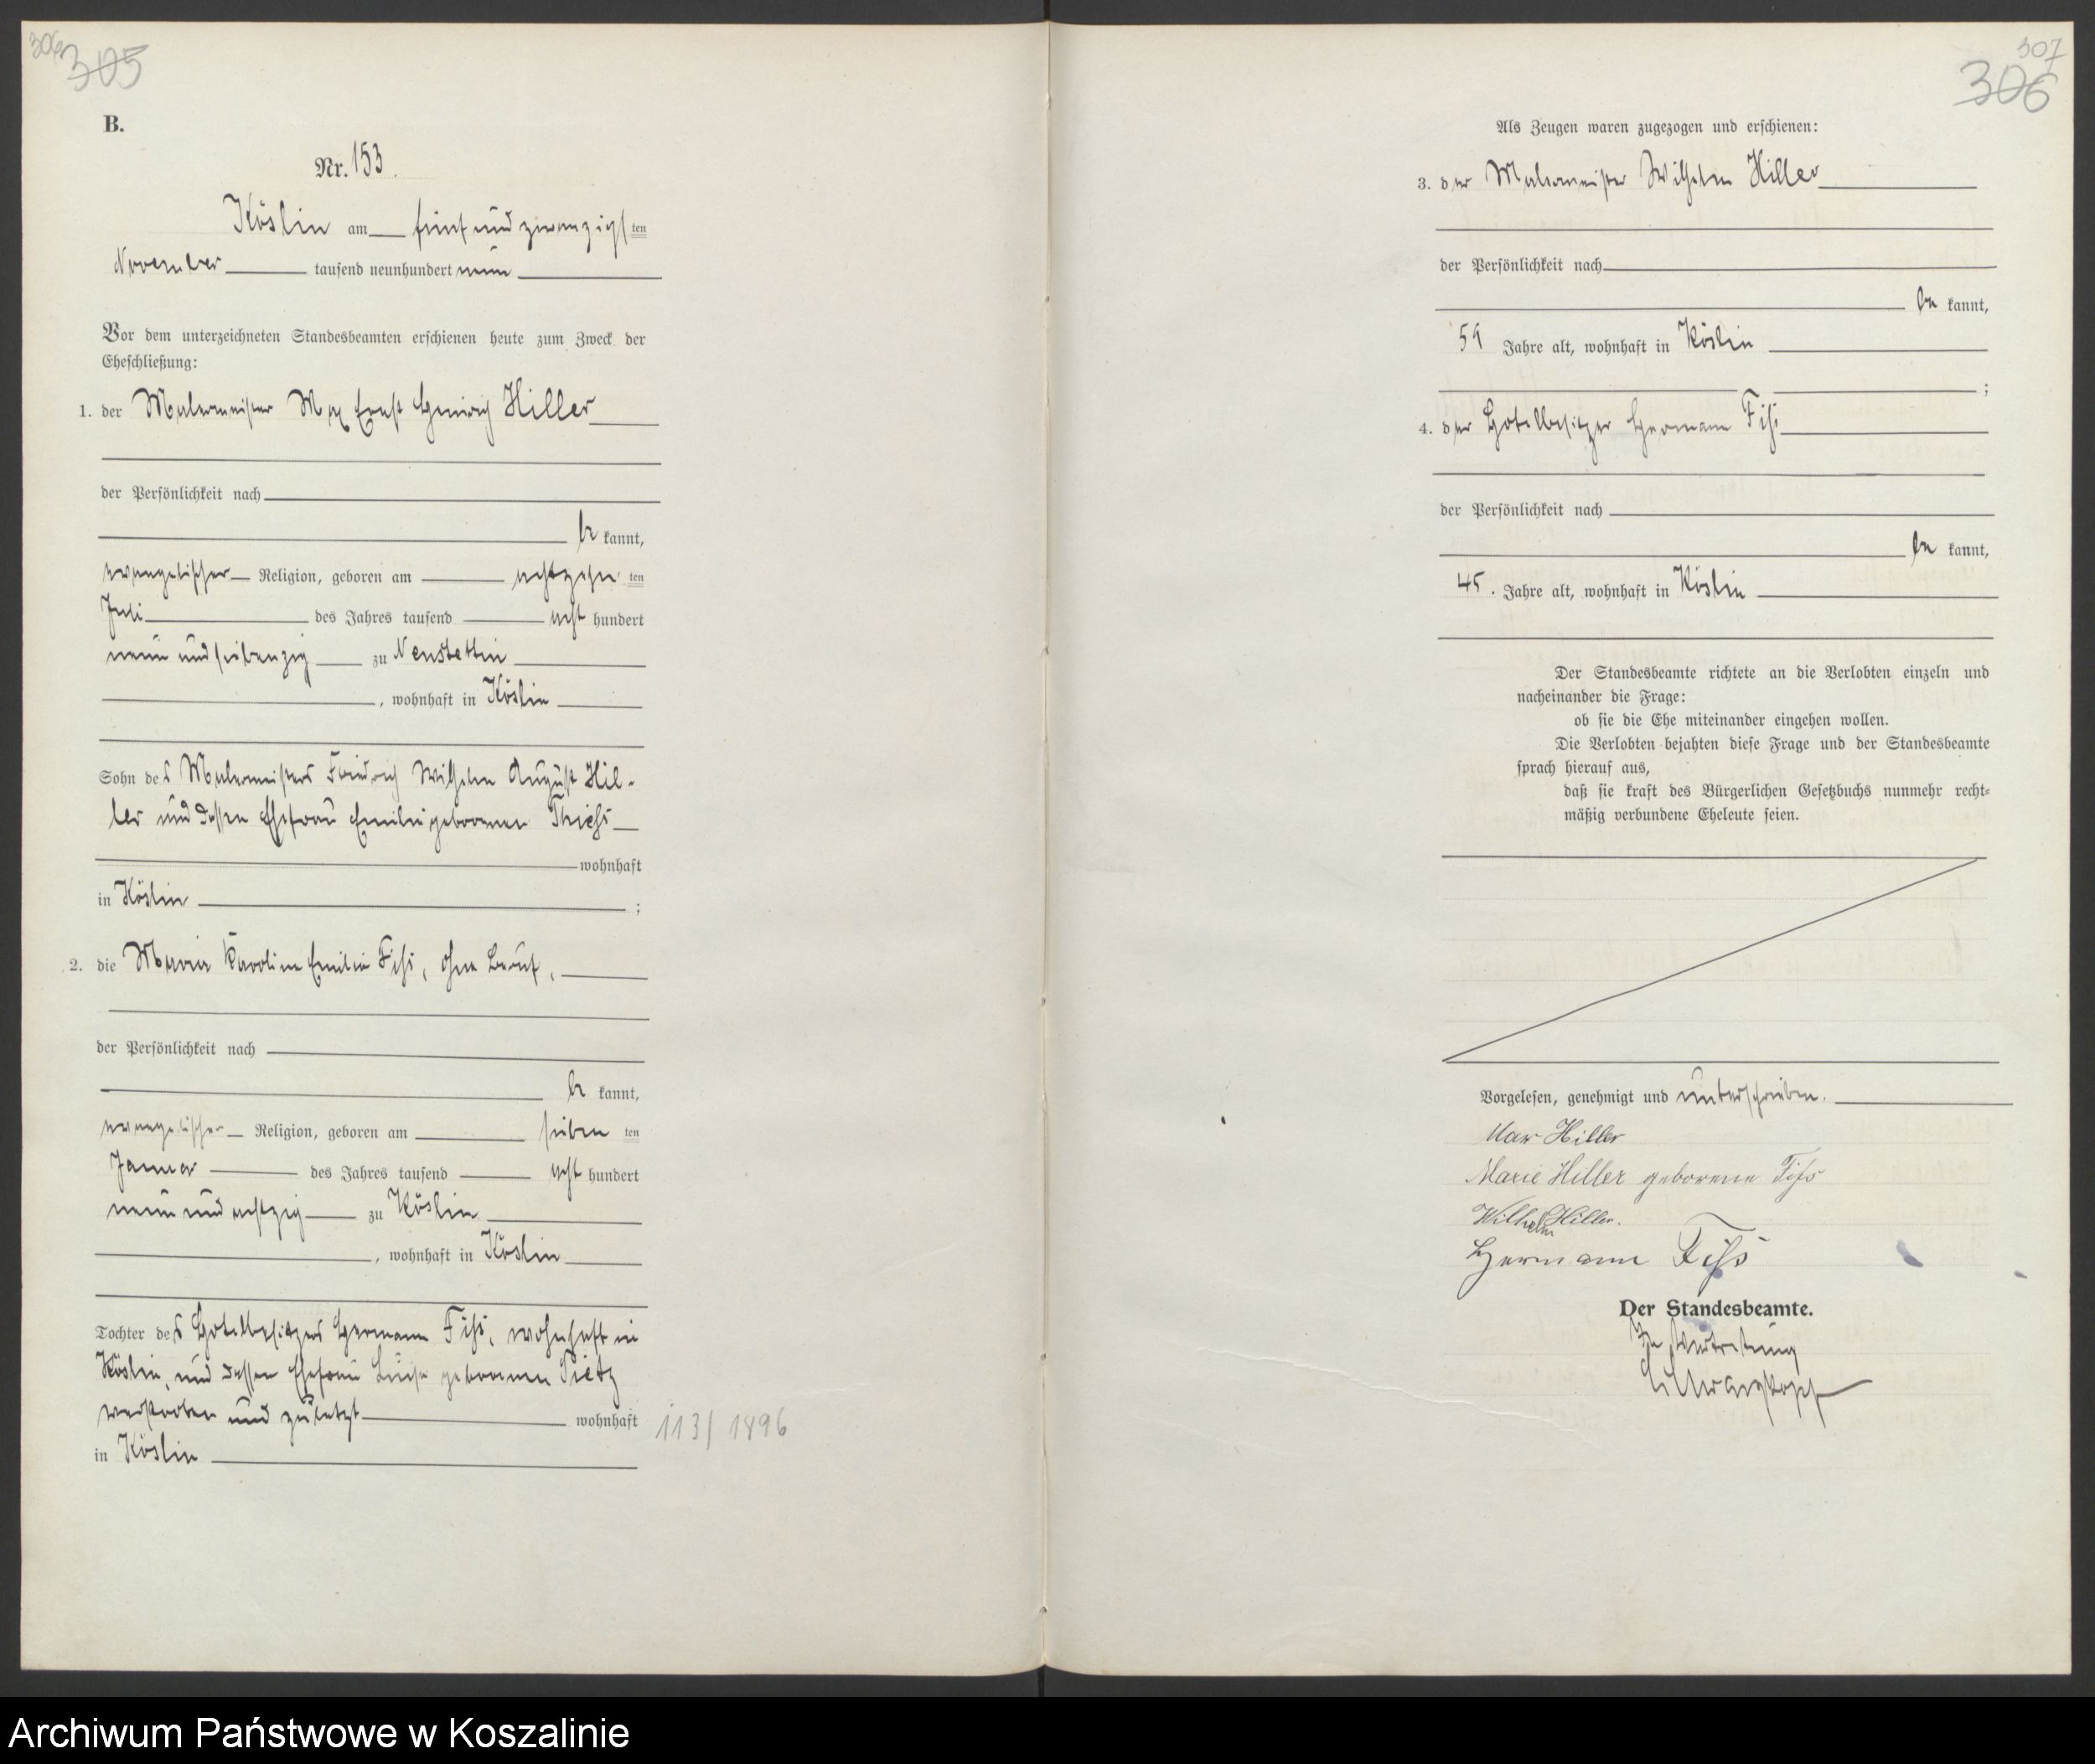 306
305
B.
Nr. 153.
Köslin am fünf und zwanzigsten
November tausend neunhundert neun
Vor dem unterzeichneten Standesbeamten erschienen heute zum Zweck der
Eheschließung:
1. der Malermeister Max Ernst Heinrich Hiller
der Persönlichkeit nach
be kannt,
evangelischer Religion, geboren am achtzehn ten
Juli des Jahres tausend acht hundert
neun und siebenzig zu Neustettin
, wohnhaft in Köslin
Sohn des Malermeisters Friedrich Wilhelm August Hil-
ler und dessen Ehefrau Emilie geborenen Thiess
wohnhaft
in Köslin ;
2. die Marie Karoline Emilie Fiss, ohne Beruf,
der Persönlichkeit nach
be kannt,
evangelischer Religion, geboren am sieben ten
Januar des Jahres tausend acht hundert
neun und achtzig zu Köslin
, wohnhaft in Köslin
Tochter des Hotelbesitzers Hermann Fiss, wohnhaft in
Köslin, und dessen Ehefrau Luise geborenen Tietz
verstorben und zuletzt wohnhaft
113/1896
in Köslin
307
306
Als Zeugen waren zugezogen und erschienen:
3. der Malermeister Wilhelm Hiller
der Persönlichkeit nach
be kannt,
59 Jahre alt, wohnhaft in Köslin
;
4. der Hotelbesitzer Hermann Fiss
der Persönlichkeit nach
be kannt,
45. Jahre alt, wohnhaft in Köslin
Der Standesbeamte richtete an die Verlobten einzeln und
nacheinander die Frage:
ob sie die Ehe miteinander eingehen wollen.
Die Verlobten bejahten diese Frage und der Standesbeamte
sprach hierauf aus,
daß sie kraft des Bürgerlichen Gesetzbuchs nunmehr recht-
mäßig verbundene Eheleute seien.
Vorgelesen, genehmigt und unterschrieben.
Max Hiller
Marie Hiller geborene Fiss
Wilhelm Hiller.
Hermann Fiss
Der Standesbeamte.
In Vertretung
Archiwum Państwowe w Koszalinie